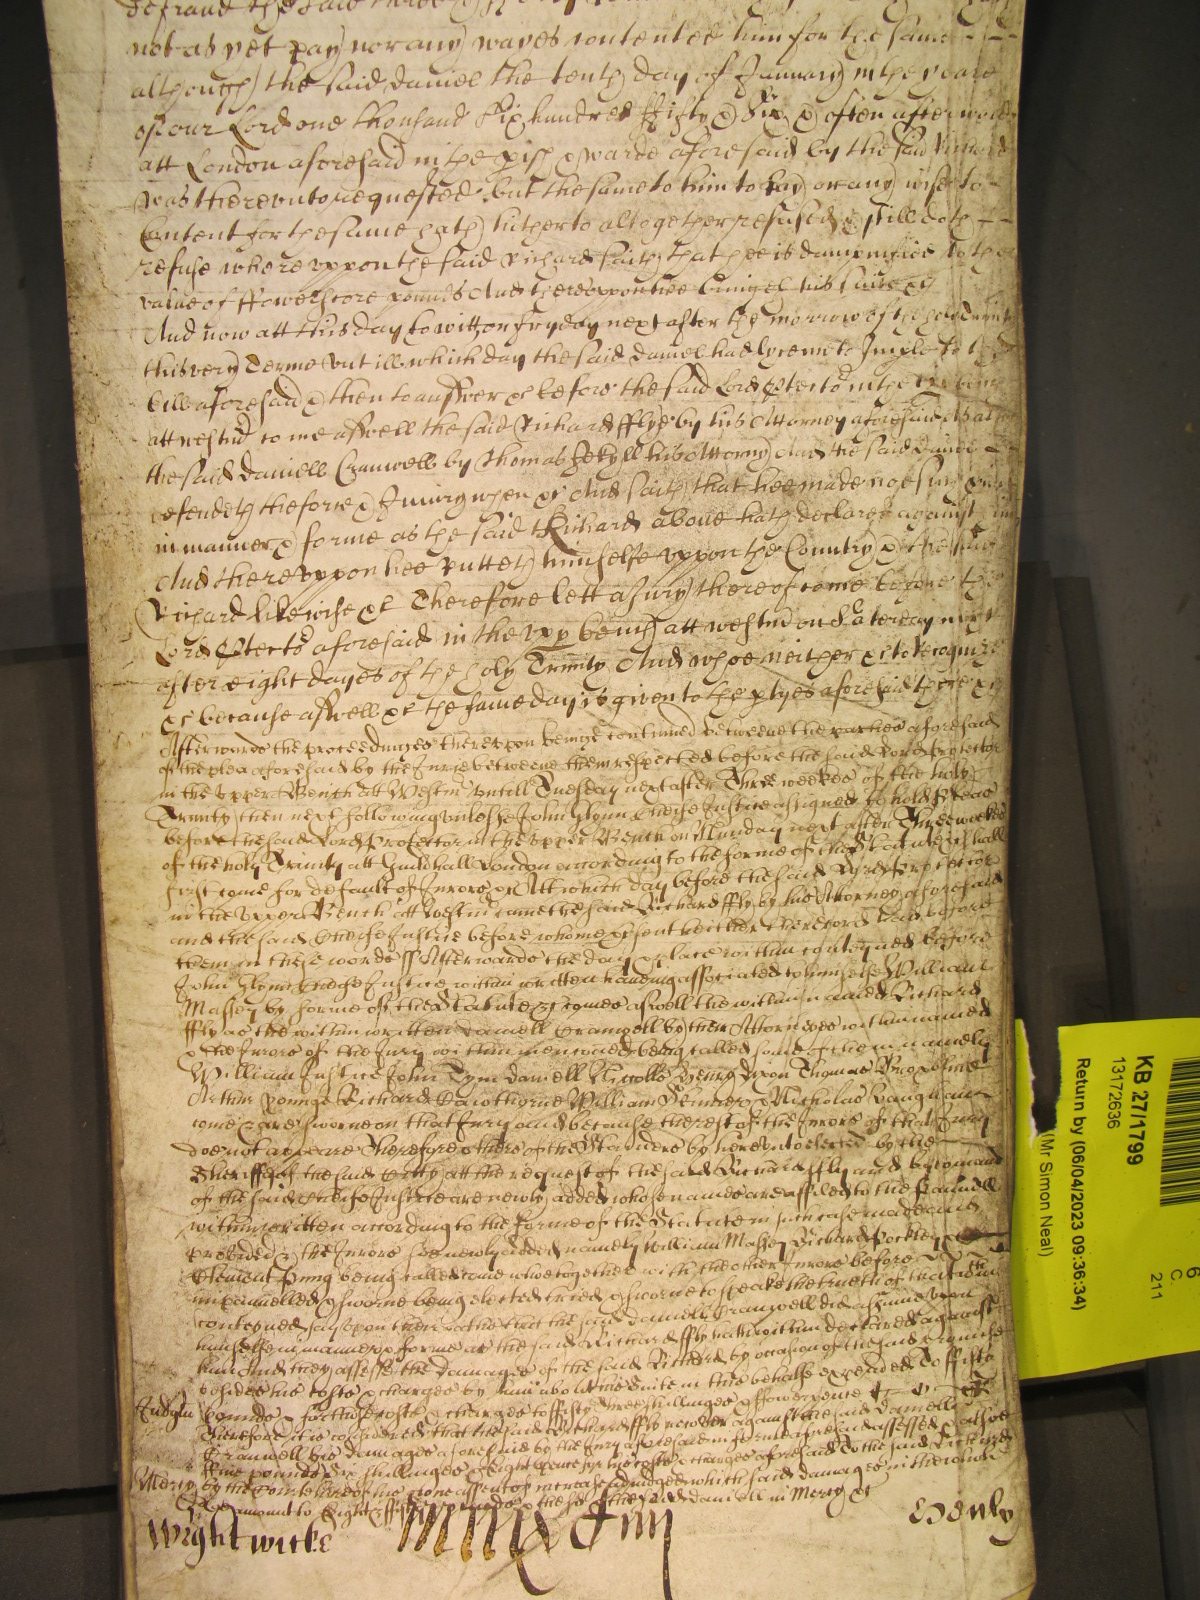 defraud the said Richard
not as yet pay nor any wayes contented him for the same
although the said Daniel the tenth day of January in the yeare
of our Lord one thousand six hundred ffifty & Six & often afterwards
att London aforesaid in the pish & warde aforesaid by the said Richard
was therevnto requested but the same to him to pay or any wise to
Content for the same hath hitherto altogether refused & still doth
refuse wherevppon the said Richard saith that hee is dampnified to the
value of ffowerscore pounds And therevppon hee bringeth his suite &c
And now att this day to witt on fryday next after the morrow of the holy Trinity
this very Terme vntill which day the said Daniel had lycence to Imple to the
bill aforesaid & then to answer &c before the said Lord Ptector in the vpp bench
att westm come aswell the said Richard fflye by his Attorney aforesaid as also
the said Daniell Cranwell by Thomas Jekyll his Attorny And the said Daniel
defendeth the force & Iniury when &c And saith that hee made noe such
in manner & forme as the said Richard aboue hath declared against him
And therevppon hee putteth himselfe vppon the Country & the said
Richard likewise &c Therefore lett a Jury thereof come before the
Lord Ptector aforesaid in the vpp bench att westm on Saterday next
after eight dayes of the holy Trinity And whoe neither &c to recognize
&c because aswell &c the same day is given to the ptyes aforesaid there &c
Afterwards the proceedinges therevpon beinge continued betweene the parties aforesaid
of the plea aforesaid by the Jurie betweene them respected before the said Lord Protector
in the vpper Bench att Westm vntill Tuesday next after Three weekes of the holy
Trinity then next following vnlesse John Glynn Cheife Justice assigned to hold Pleas
before the said Lord Protector in the vpper Bench on Munday next after Three weekes
of the holy Trinity att Guildhall London according to the forme of the Statute shall
first come for default of Jurors &c Att which day before the said Lord Protector
in the vpper Bench att Westm came the said Richard ffly by his Attorney aforesaid
and the said Cheife Justice before whome &c sent hether the record had before
them in these words ss Afterwards the day & place within conteyned before
John Glynn Cheife Justice within written haveing associated to himselfe William
Massey by forme of the Statute &c comes aswell the within named Richard
ffly as the within written Daniell Cranwell by their Attornyes within named
& the Jurors of the Jury within mentioned being called some of them namely
William Justice John Tym Daniell Nicolls Henry Dixon Thomas
Arthur younge Richard Hawthorne William & Nicholas Vaughan
come & are sworne on that Jury and because the rest of the Jurors of that Jury
doe not appeare Therefore others of the Standers by herevnto elected by the
Sheriffes of the said Citty att the request of the said Richard ffly and by comand
of the said Cheife Justice are newly added whose names are affiled to the Pannell
within written according to the forme of the Statute in such case made and
provided & the Jurors soe newly added namely William Massey Richard Pockley &
Clement being called come who together with the other Jurors before
impannelled & sworne being elected tried & sworne to speake the trueth of the
conteyned say vpon their oathe that the said Daniell Cranwell did assume vpon
himselfe in manner & forme as the said Richard ffly hath within declared against
him And they assesse the damages of the said Richard by occasion of the said premisses
besides his costs & charges by him about his suite in this behalfe expended To ffifty
Judgm pounds & for those costs & charges to ffifty three shillinges & fower pence
Therefore it is considered that the said Richard ffly recover against the said Daniell
Cranwell his damages aforesaid by the Jury aforesaid in forme aforesaid assessed & alsoe
ffive pounds six shillinges & eight pence for his costs & charges aforesaid To the said Richard
Mercy by the Court here of his owne assent of increase adiudged which said damages in the whole
amount to Eight & ffifty pounds & the said Daniell in Mercy &c
Wightwicke
Henly
KB 27/1799
13172636
Return by (06/04/2023 09:36:34)
(Mr Simon Neal)
6
C
211